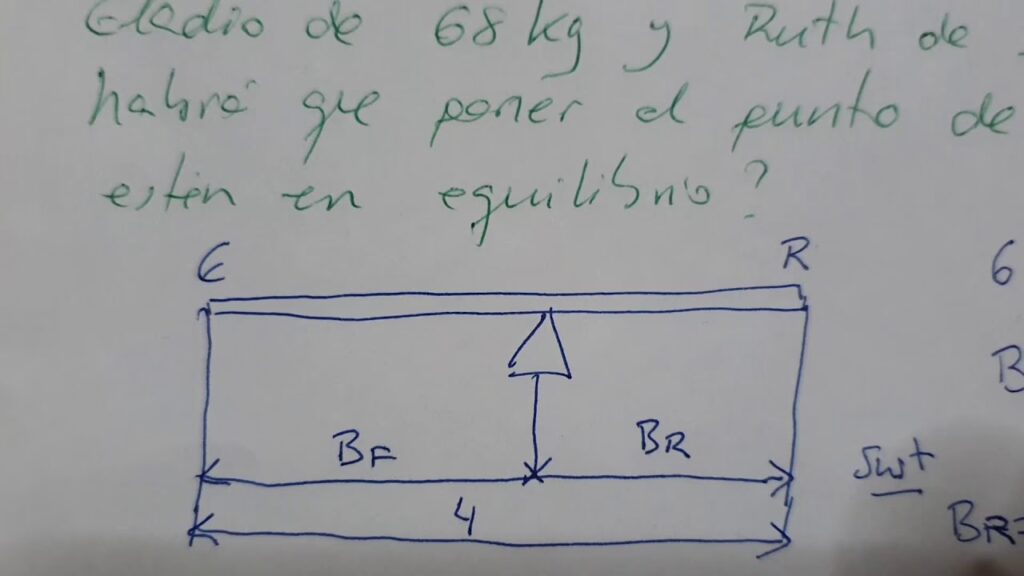 Eladio de 68 kg y Ruth de
habrá que poner el punto de
estén en equilibrio?
E R
6
B
BF BR
Sust
4
BR=